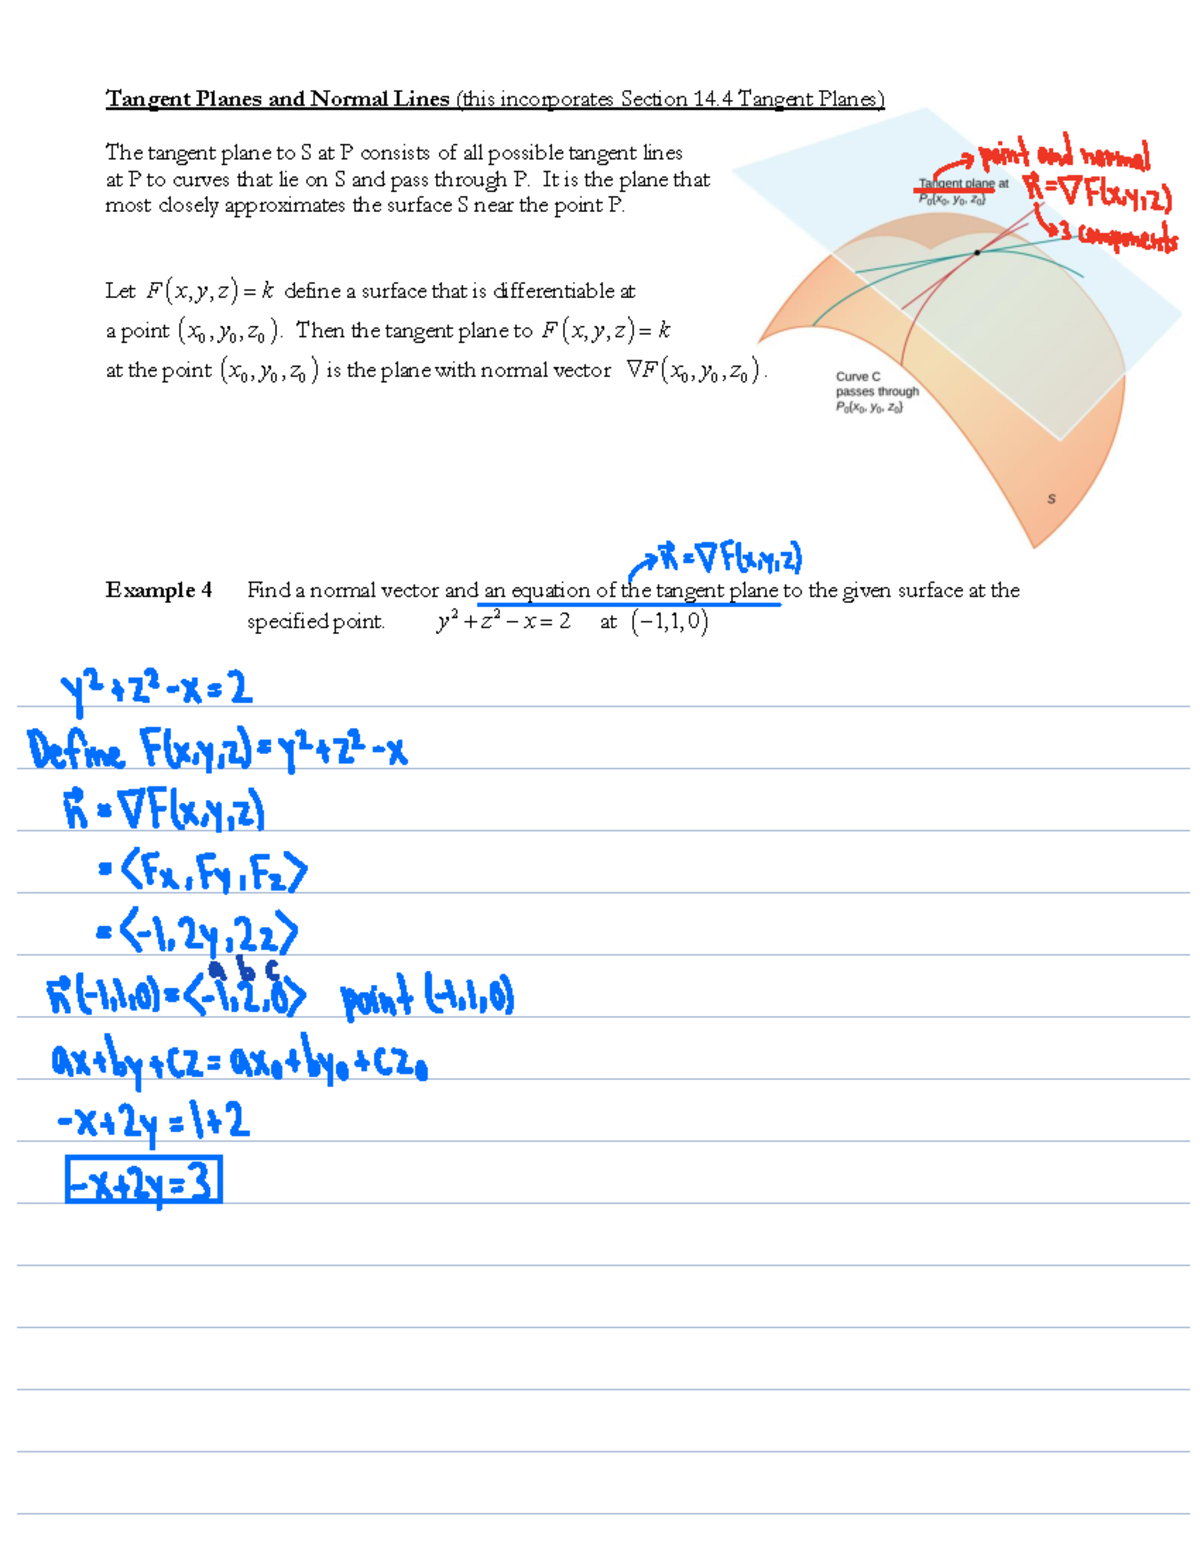 Tangent Planes and Normal Lines (this incorporates Section 14.4 Tangent Planes)
The tangent plane to S at P consists of all possible tangent lines
at P to curves that lie on S and pass through P. It is the plane that
most closely approximates the surface S near the point P.
point and normal
Tangent plane at
P₀(x₀, y₀, z₀)
n⃗ = ∇F(x,y,z)
3 components
Let F(x,y,z) = k define a surface that is differentiable at
a point (x₀,y₀,z₀). Then the tangent plane to F(x,y,z) = k
at the point (x₀,y₀,z₀) is the plane with normal vector ∇F(x₀,y₀,z₀).
Curve C
passes through
P₀(x₀, y₀, z₀)
S
n⃗ = ∇F(x,y,z)
Example 4 Find a normal vector and an equation of the tangent plane to the given surface at the
specified point. y² + z² − x = 2 at (−1,1,0)
y²+z²-x=2
Define F(x,y,z)=y²+z²-x
n⃗ = ∇F(x,y,z)
= ⟨Fx, Fy, Fz⟩
= ⟨-1, 2y, 2z⟩
a b c
n⃗(-1,1,0)=⟨-1,2,0⟩ point (-1,1,0)
ax+by+cz=ax₀+by₀+cz₀
-x+2y=1+2
-x+2y=3